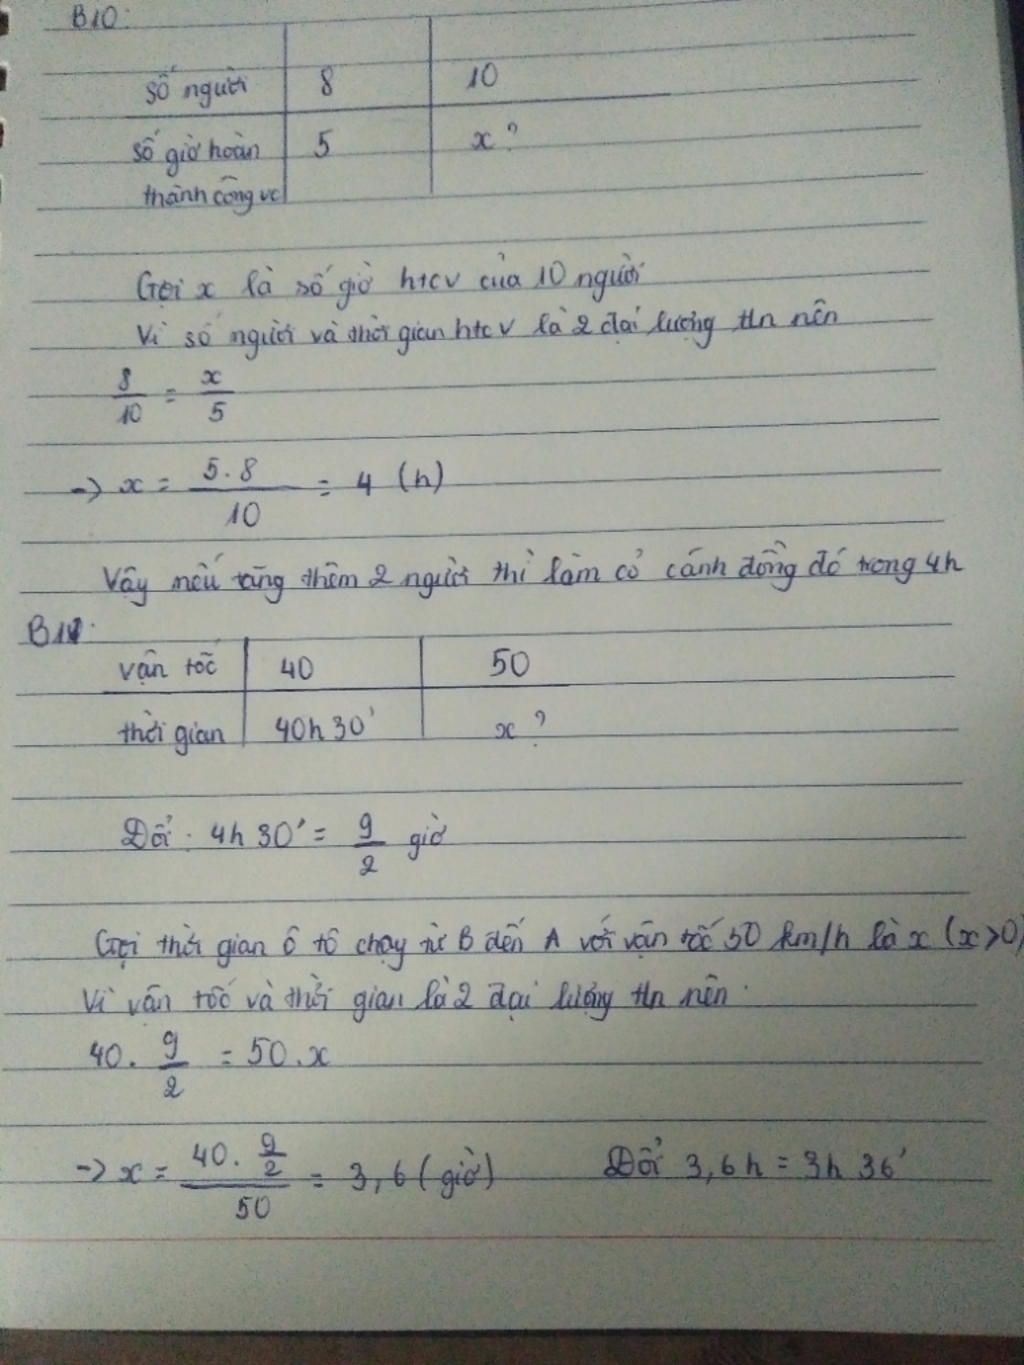 B10:
số người 8 10
số giờ hoàn 5 x?
thành công vc
Gọi x là số giờ htcv của 10 người
Vì số người và thời gian htcv là 2 đại lượng tln nên
8/10 = x/5
→ x = 5.8/10 = 4 (h)
Vậy nếu tăng thêm 2 người thì làm cỏ cánh đồng đó trong 4h
B11:
vận tốc 40 50
thời gian 40h 30' x?
Đổi: 4h 30' = 9/2 giờ
Gọi thời gian ô tô chạy từ B đến A với vận tốc 50 km/h là x (x>0)
Vì vận tốc và thời gian là 2 đại lượng tln nên.
40. 9/2 = 50.x
→ x = 40. 9/2 / 50 = 3,6 (giờ) Đổi 3,6h = 3h 36'